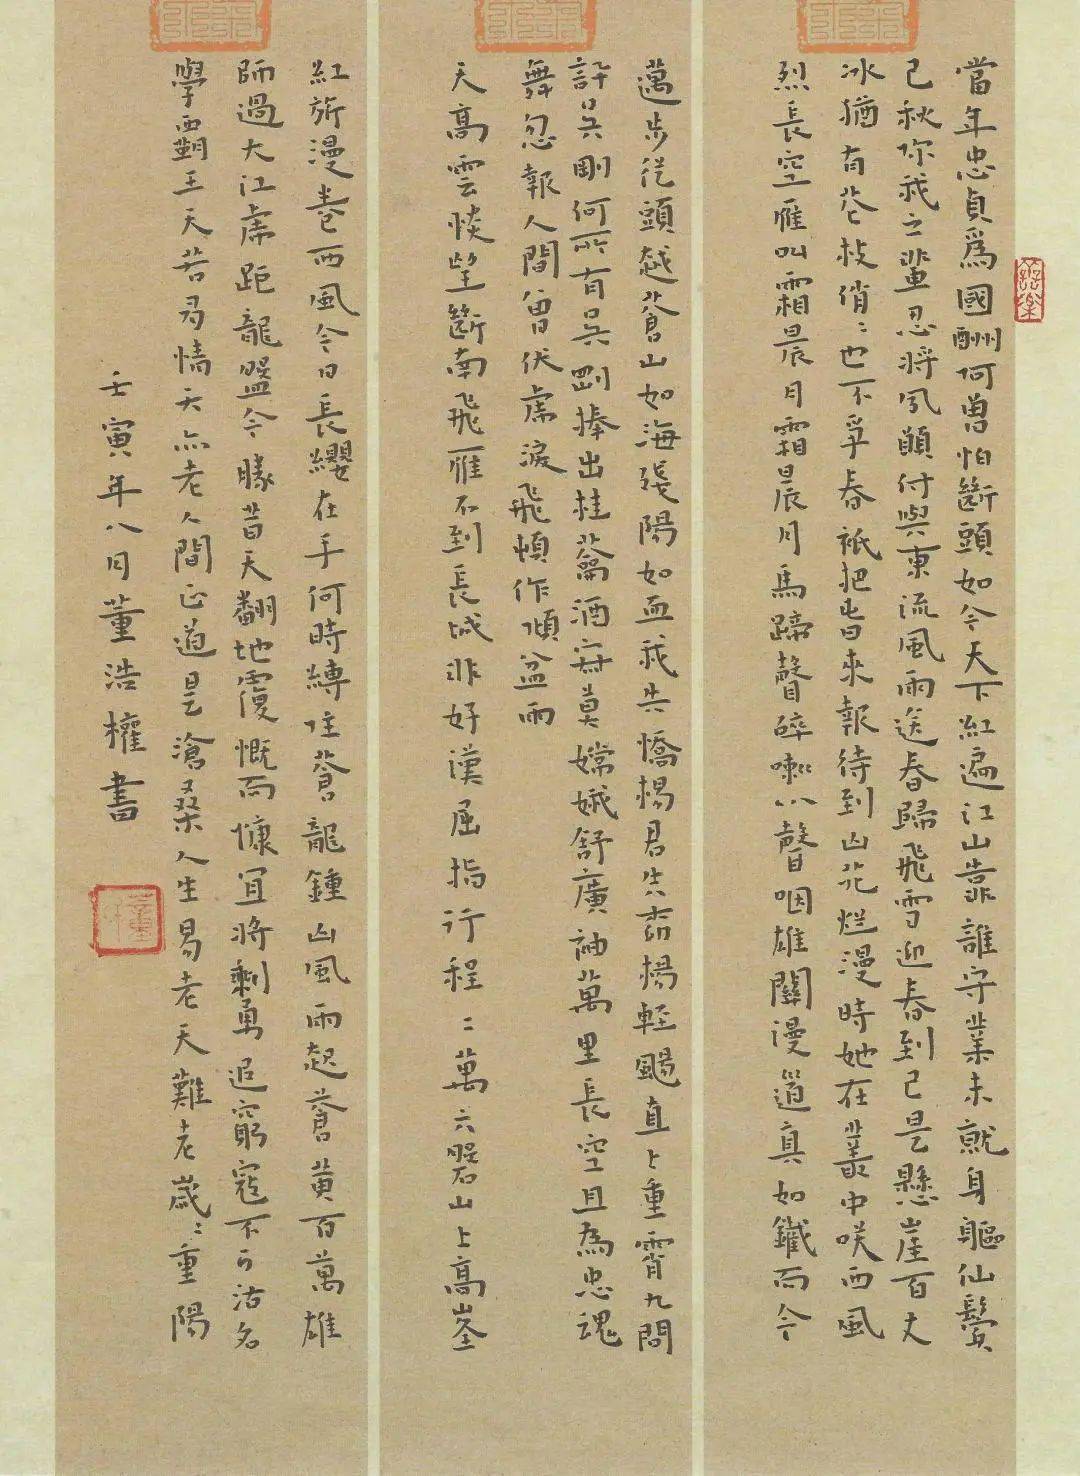 當年忠貞爲國酬何曾怕斷頭如今天下紅遍江山靠誰守業未就身軀仙鬢
已秋你我之輩忍將夙願付與東流風雨送春歸飛雪迎春到已是懸崖百丈
冰猶有花枝俏〻也不爭春衹把春來報待到山花爛漫時她在叢中咲西風
烈長空雁叫霜晨月霜晨月馬蹄聲碎喇叭聲咽雄關漫道真如鐵而今
邁步從頭越蒼山如海殘陽如血我失憍楊君失柳楊輕颺直上重霄九問
訊吳剛何所有吳剛捧出桂蘤酒寂寞嫦娥舒廣袖萬里長空且為忠魂
舞忽報人間曾伏虎淚飛頓作傾盆雨
天高雲淡望斷南飛雁不到長城非好漢屈指行程二萬六盤山上高峯
紅旂漫卷西風今日長纓在手何時縛住蒼龍鍾山風雨起蒼黃百萬雄
師過大江虎距龍盤今勝昔天翻地覆慨而慷宜將剩勇追窮寇不可沽名
學霸王天若有情天亦老人間正道是滄桑人生易老天難老歲〻重陽
壬寅年八月董浩權書